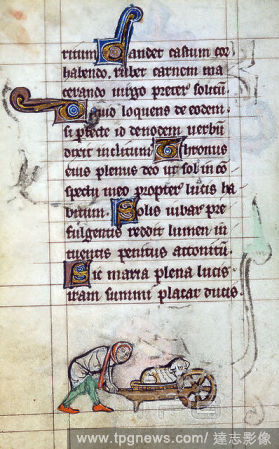 ritum Gaudet castum cor
habendo. iubet carnem ma
cerando uirgo preter solitū
Dauid loquens de eodem
uerbū
dixit inclitum Thronus
eius plenus deo ut sol in cō
spectu meo propter lucis ha
bitum. Solis iubar pre
fulgentis reddit lumen in
tuentis penitus attonitū.
Sic maria plena lucis
iram summi placat ducis.
www.tpgnews.com/ 達志影像